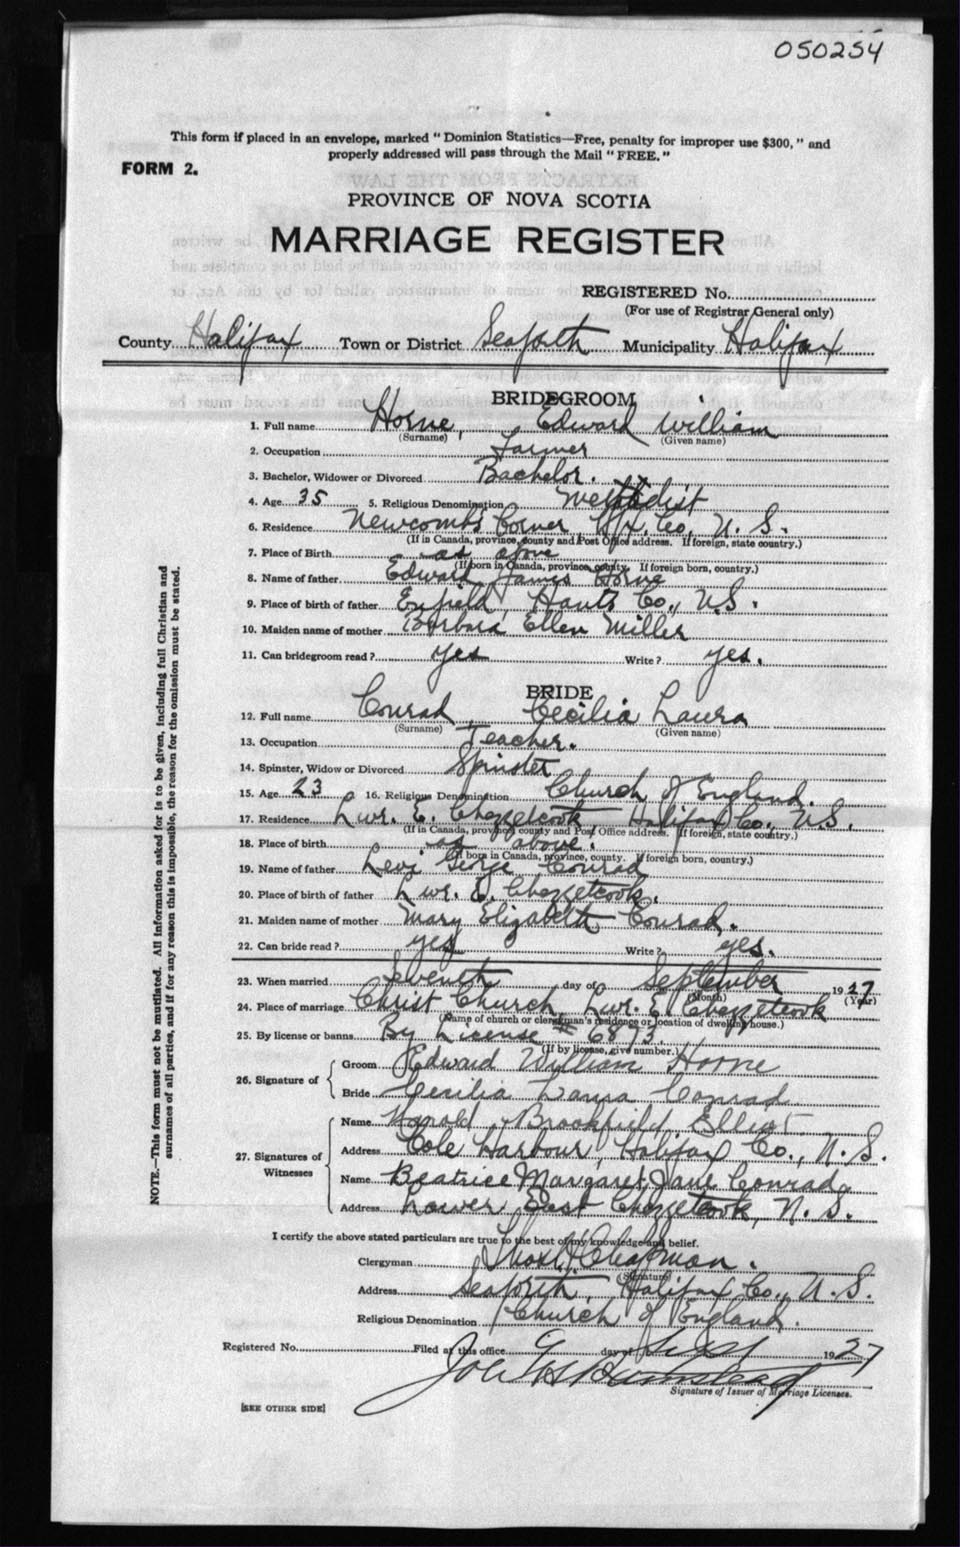 050254
This form if placed in an envelope, marked "Dominion Statistics—Free, penalty for improper use $300," and
properly addressed will pass through the Mail "FREE."
FORM 2.
PROVINCE OF NOVA SCOTIA
MARRIAGE REGISTER
REGISTERED No.
(For use of Registrar General only)
County Halifax Town or District Seaforth Municipality Halifax
BRIDEGROOM
1. Full name Horne, Edward William
(Surname) (Given name)
2. Occupation Farmer
3. Bachelor, Widower or Divorced Bachelor.
4. Age 35 5. Religious Denomination Methodist
6. Residence Newcombs Corner Hfx. Co, N. S.
(If in Canada, province, county and Post Office address. If foreign, state country.)
7. Place of Birth as above
(If born in Canada, province, county. If foreign born, country.)
8. Name of father Edward James Horne
9. Place of birth of father Enfield, Hants Co., N.S.
10. Maiden name of mother Barbara Ellen Miller
11. Can bridegroom read? yes Write? yes.
BRIDE
12. Full name Conrad, Cecilia Laura
(Surname) (Given name)
13. Occupation Teacher.
14. Spinster, Widow or Divorced Spinster
15. Age 23 16. Religious Denomination Church of England.
17. Residence Lwr. E. Chezzetcook, Halifax Co., N.S.
(If in Canada, province county and Post Office address. If foreign, state country.)
18. Place of birth as above.
(If born in Canada, province, county. If foreign born, country.)
19. Name of father Levi George Conrad
20. Place of birth of father Lwr. E. Chezzetcook.
21. Maiden name of mother Mary Elizabeth Conrad.
22. Can bride read? yes Write? yes.
23. When married Seventh day of September 1927
(Month) (Year)
24. Place of marriage Christ Church, Lwr. E. Chezzetcook
(Name of church or clergyman's residence or location of dwelling house.)
25. By license or banns By License # 6873
(If by license, give number.)
26. Signature of Groom Edward William Horne
Bride Cecilia Laura Conrad
27. Signatures of Witnesses
Name Harold Brookfield Elliot
Address Cole Harbour, Halifax Co., N. S.
Name Beatrice Margaret Jane Conrad
Address Lower East Chezzetcook, N. S.
I certify the above stated particulars are true to the best of my knowledge and belief.
Clergyman Chapman.
(Signature)
Address Seaforth, Halifax Co., N. S.
Religious Denomination Church of England.
Registered No. Filed at this office day of Sept 1927
Signature of Issuer of Marriage Licenses.
[SEE OTHER SIDE]
NOTE.—This form must not be mutilated. All information asked for is to be given, including full Christian and
surnames of all parties, and if for any reason this is impossible, the reason for the omission must be stated.